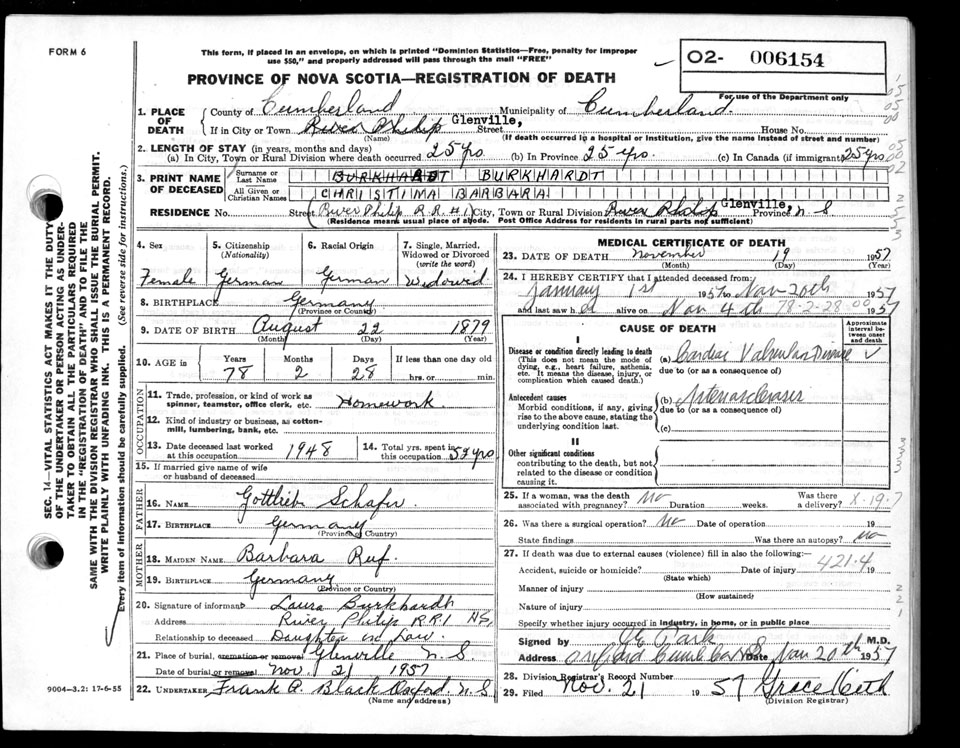 FORM 6
This form, if placed in an envelope, on which is printed "Dominion Statistics—Free, penalty for improper
use $50," and properly addressed will pass through the mail "FREE"
PROVINCE OF NOVA SCOTIA—REGISTRATION OF DEATH
02- 006154
For use of the Department only
1. PLACE OF DEATH County of Cumberland Municipality of Cumberland.
If in City or Town River Philip Glenville, Street House No.
(Name) (If death occurred in a hospital or institution, give the name instead of street and number)
2. LENGTH OF STAY (in years, months and days)
(a) In City, Town or Rural Division where death occurred 25 yrs. (b) In Province 25 yrs. (c) In Canada (if immigrant) 25 yrs
3. PRINT NAME OF DECEASED Surname or Last Name BURKHARDT BURKHARDT
All Given or Christian Names CHRISTIMA BARBARA
RESIDENCE No. Street (River Philip R.R.#1) City, Town or Rural Division River Philip Glenville, Province N.S
(Residence means usual place of abode. Post Office Address for residents in rural parts not sufficient)
4. Sex Female
5. Citizenship (Nationality) German
6. Racial Origin German
7. Single, Married, Widowed or Divorced (write the word) Widowed
8. BIRTHPLACE Germany
(Province or Country)
9. DATE OF BIRTH August 22 1879
(Month) (Day) (Year)
10. AGE is Years 78 Months 2 Days 28 If less than one day old hrs. or min.
OCCUPATION
11. Trade, profession, or kind of work as spinner, teamster, office clerk, etc. Homework.
12. Kind of industry or business, as cotton-mill, lumbering, bank, etc.
13. Date deceased last worked at this occupation 1948
14. Total yrs. spent in this occupation 52 yrs
15. If married give name of wife or husband of deceased
FATHER
16. NAME Gottlieb Schafer
17. BIRTHPLACE Germany
(Province or Country)
MOTHER
18. MAIDEN NAME Barbara Ruf.
19. BIRTHPLACE Germany
(Province or Country)
20. Signature of informant Laura Burkhardt
Address River Philip RR1 N.S,
Relationship to deceased Daughter in Law.
21. Place of burial, cremation or removal Glenville N.S.
Date of burial or removal Nov. 21 1957
22. UNDERTAKER Frank A. Black Oxford. N.S.
(Name and Address)
MEDICAL CERTIFICATE OF DEATH
23. DATE OF DEATH November 19 1957
(Month) (Day) (Year)
24. I HEREBY CERTIFY that I attended deceased from
January 1st 1957 to Nov 20th 1957
and last saw h er alive on Nov 4th 78-2-28 00 1957
CAUSE OF DEATH
Approximate interval between onset and death
I
Disease or condition directly leading to death (a) Cardiac Valvular Disease ✓
(This does not mean the mode of dying, e.g., heart failure, asthenia, etc. It means the disease, injury, or complication which caused death.)
due to (or as a consequence of)
Antecedent causes (b)
Morbid conditions, if any, giving rise to the above cause, stating the underlying condition last.
due to (or as a consequence of)
(c)
II
Other significant conditions
contributing to the death, but not related to the disease or condition causing it.
25. If a woman, was the death associated with pregnancy? No Duration weeks. Was there a delivery? X-19-7
26. Was there a surgical operation? No Date of operation 19
State findings Was there an autopsy? No
27. If death was due to external causes (violence) fill in also the following:—
Accident, suicide or homicide? Date of injury 421.4 19
(State which)
Manner of injury
(How sustained)
Nature of injury
Specify whether injury occurred in industry, in home, or in public place
Signed by Park M.D.
Address Oxford Cumb Co N S Date Nov 20th 1957
28. Division Registrar's Record Number
29. Filed Nov. 21 1957 Grace
(Division Registrar)
9004—3.2: 17-6-55
SEC. 14—VITAL STATISTICS ACT MAKES IT THE DUTY
OF THE UNDERTAKER OR PERSON ACTING AS UNDER-
TAKER TO OBTAIN ALL THE PARTICULARS REQUIRED
IN THE "REGISTRATION OF DEATH" AND TO FILE THE
SAME WITH THE DIVISION REGISTRAR WHO SHALL ISSUE THE BURIAL PERMIT.
WRITE PLAINLY WITH UNFADING INK. THIS IS A PERMANENT RECORD.
Every item of information should be carefully supplied. (See reverse side for instructions.)